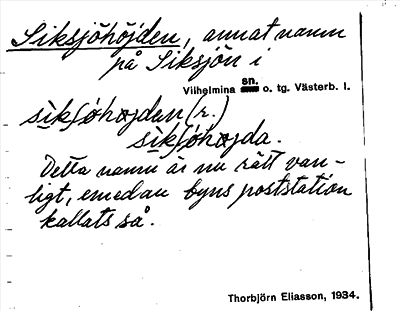 Siksjöhöjden, annat namn
på Siksjön i
Vilhelmina sn. o. tg. Västerb. l.
sikʃóhøjden (r.)
sikʃóhøjda.
Detta namn är nu rätt van-
ligt, emedan byns poststation
kallats så.
Thorbjörn Eliasson, 1934.